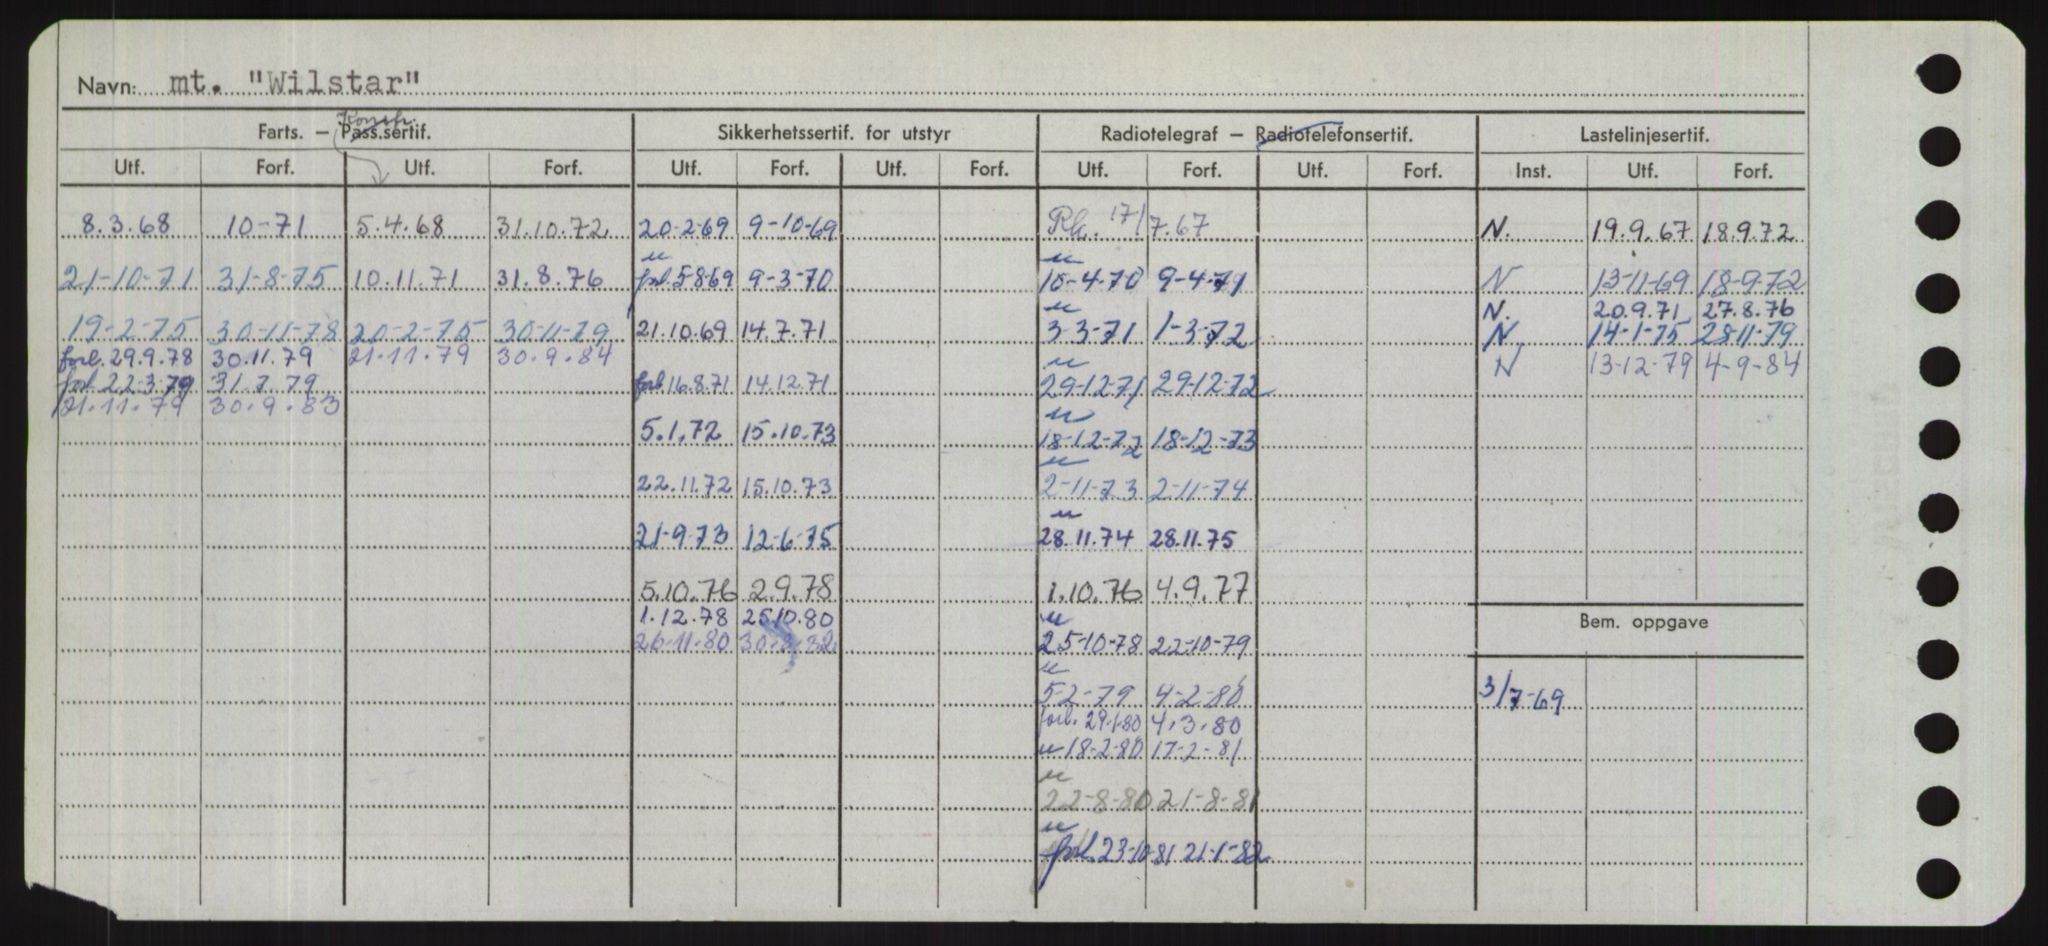 Navn: mt. "Wilstar"
Konstr.
Farts. — Pass.sertif. Sikkerhetssertif. for utstyr Radiotelegraf — Radiotelefonsertif. Lastelinjesertif.
Utf. Forf. Utf. Forf. Utf. Forf. Utf. Forf. Utf. Forf. Utf. Forf. Inst. Utf. Forf.
8.3.68 10-71 5.4.68 31.10.72 20-2-69 9-10-69 Rk. 17/7.67 N. 19.9.67 18.9.72
21-10-71 31-8-75 10.11.71 31.8.76 forl. 5-8-69 9-3-70 10-4-70 9-4-71 N 13-11-69 18-9-72
N. 20.9.71 27.8.76
19-2-75 30-11-78 20-2-75 30-11-79 21.10.69 14.7.71 3-3-71 1-3-72 N 14-1-75 28-11-79
forl. 29.9.78 30.11.79 21.11.79 30.9.84 N 13-12-79 4-9-84
forl. 22.3.79 31.7.79 forl. 16.8.71 14.12.71 29-12-71 29-12-72
21.11.79 30.9.83
5.1.72 15.10.73 18-12-72 18-12-73
22.11.72 15.10.73 2-11-73 2-11-74
21-9-73 12-6-75 28.11.74 28.11.75
5.10.76 2.9.78 1.10.76 4.9.77
1.12.78 25.10.80 Bem. oppgave
26.11.80 25-10-78 22-10-79
5-2-79 4-2-80 3/7-69
forl. 29.1.80 4.3.80
18-2-80 17-2-81
22-8-80 21-8-81
forl. 23-10-81 21-1-82